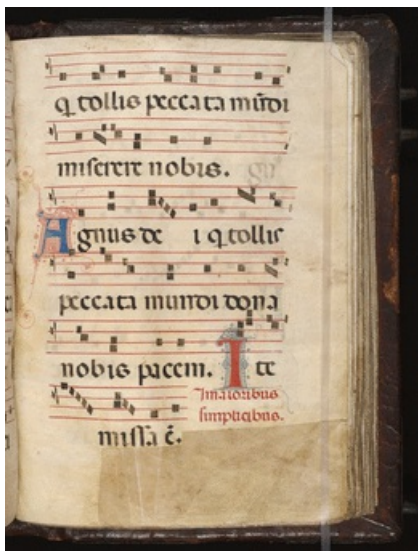 q̄ tollis peccata mūdi
miserere nobis.
Agnus de i q̄ tollis
peccata mundi dona
nobis pacem. Ite
maioribus
simplicibus.
missa ē.